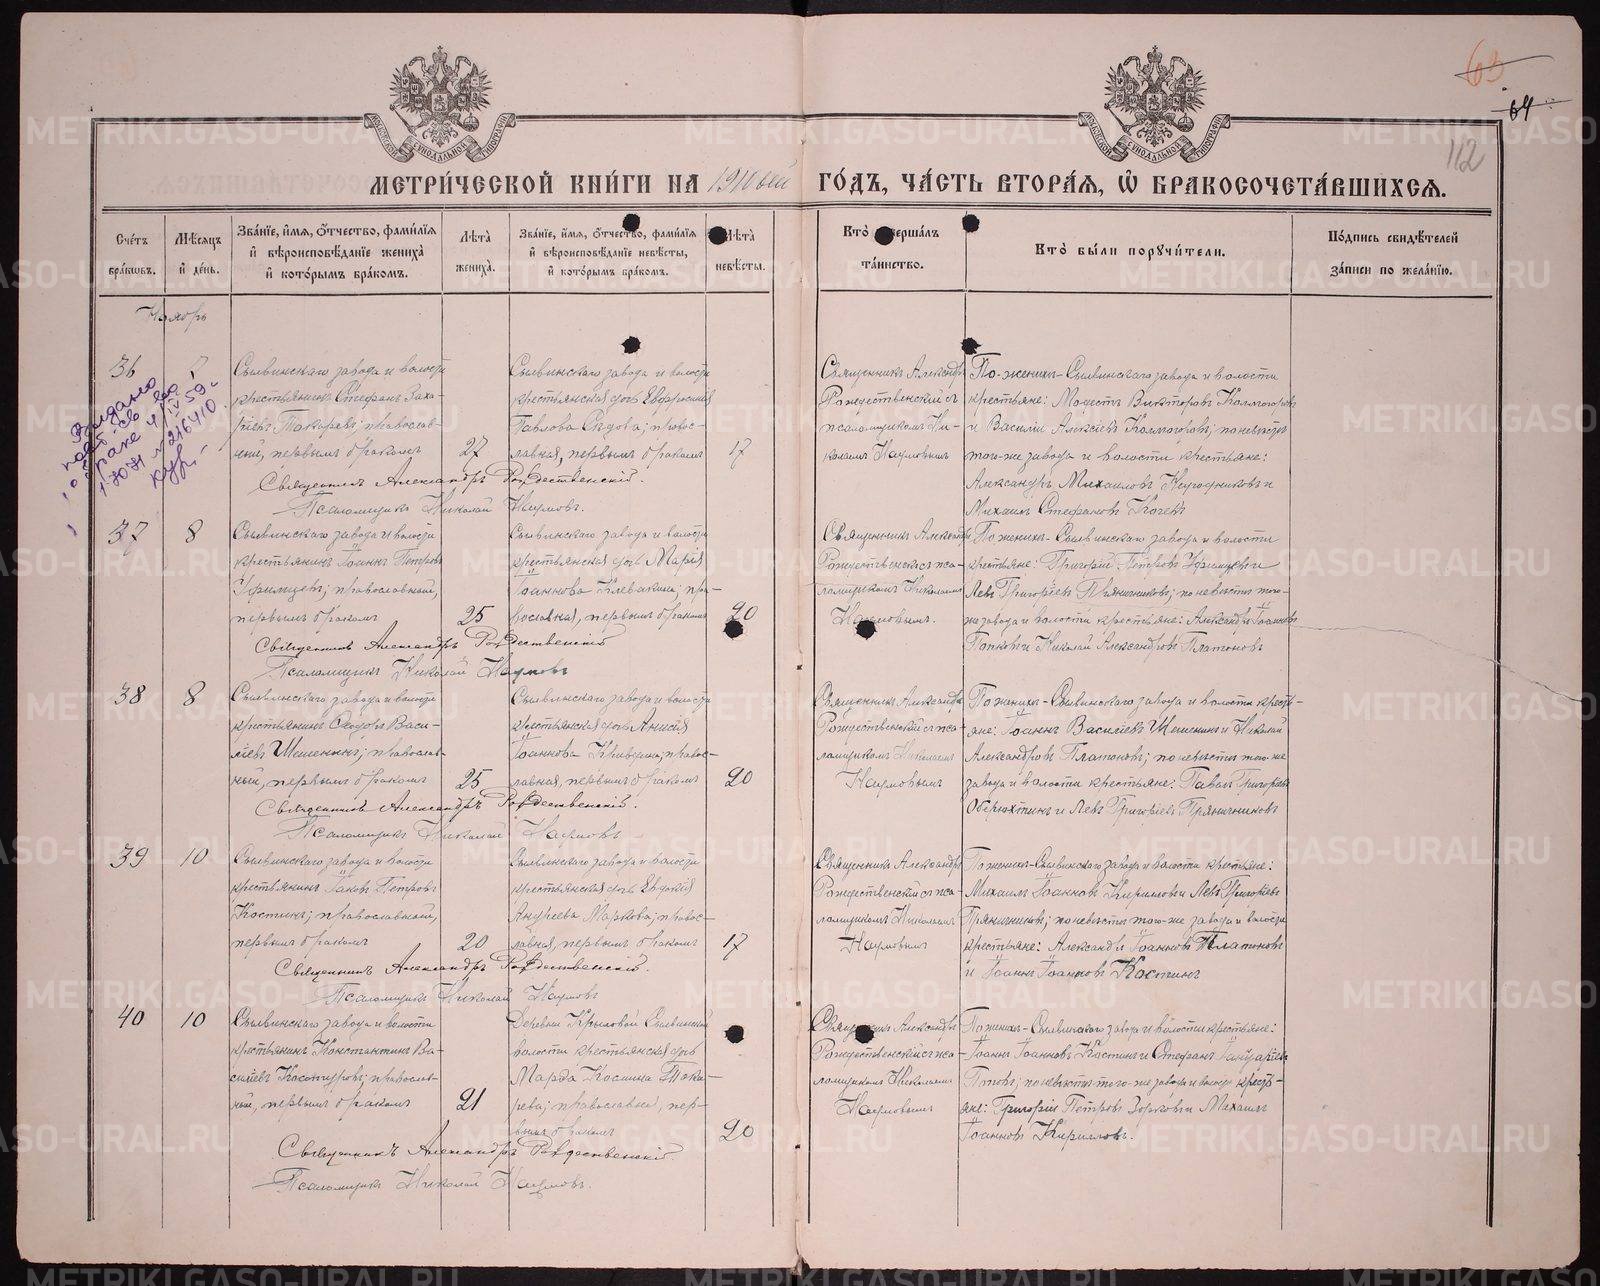 63
64
112
МЕТРИ́ЧЕСКОЙ КНИ́ГИ НА 1910 ый ГО́ДЪ, ЧА́СТЬ ВТОРА́Я, Ѽ БРАКОСОЧЕТА́ВШИХСЯ.
Счётъ бра́кѡвъ.
Мѣ́сяцъ и҆ де́нь.
Зва́нїе, и҆́мя, ѻ҆́тчество, фами́лїя и҆ вѣроисповѣ́данїе жениха̀ и҆ кото́рымъ бра́комъ.
Лѣ́та жениха̀.
Зва́нїе, и҆́мя, ѻ҆́тчество, фами́лїя и҆ вѣроисповѣ́данїе невѣ́сты, и҆ кото́рымъ бра́комъ.
Лѣ́та невѣ́сты.
Кто̀ соверша́лъ та́инство.
Кто̀ бы́ли порꙋчи́тели.
По́дпись свидѣ́телей за́писи по жела́нїю.
Ноябрь
36
7
Сылвинскаго завода и волости
крестьянинъ Стефанъ Заха-
ріевъ Токаревъ, православ-
ный, первымъ бракомъ
27
Сылвинскаго завода и волости
крестьянская дочь Евфросинія
Павлова Сѣдова; правос-
лавная, первымъ бракомъ
17
Священникъ Александръ
Рождественскій съ
псаломщикомъ Ни-
колаемъ Наумовымъ
По женихѣ - Сылвинскаго завода и волости
крестьяне: Модестъ Викторовъ Колмогоровъ
и Василій Алексѣевъ Колмогоровъ; по невѣстѣ
того-же завода и волости крестьяне:
Александръ Михаиловъ и
Михаилъ Стефановъ
Священникъ Александръ Рождественскій.
Псаломщикъ Николай Наумовъ.
37
8
Сылвинскаго завода и волости
крестьянинъ Іоаннъ Петровъ
Уфимцевъ; православный,
первымъ бракомъ
25
Сылвинскаго завода и волости
крестьянская дочь Марія
Іоаннова Клевакина; пра-
вославная, первымъ бракомъ
20
Священникъ Александръ
Рождественскій съ пса-
ломщикомъ Николаемъ
Наумовымъ.
По женихѣ - Сылвинскаго завода и волости
крестьяне: Григорій Петровъ Уфимцевъ и
Левъ Григоріевъ Пряничниковъ; по невѣстѣ того-
же завода и волости крестьяне: Александръ Іоанновъ
Попковъ и Николай Александровъ Платоновъ
Священникъ Александръ Рождественскій
Псаломщикъ Николай Наумовъ
38
8
Сылвинскаго завода и волости
крестьянинъ Ѳеодоръ Васи-
ліевъ Шешенинъ; православ-
ный, первымъ бракомъ
25
Сылвинскаго завода и волости
крестьянская дочь Анисія
Іоаннова; правос-
лавная, первымъ бракомъ
20
Священникъ Александръ
Рождественскій съ пса-
ломщикомъ Николаемъ
Наумовымъ
По женихѣ - Сылвинскаго завода и волости кресть-
яне: Іоаннъ Василіевъ Шешенинъ и Николай
Александровъ Платоновъ; по невѣстѣ того-же
завода и волости крестьяне: Павелъ Григорьевъ
Оберюхтинъ и Левъ Григоріевъ Пряничниковъ
Священникъ Александръ Рождественскій.
Псаломщикъ Николай Наумовъ
39
10
Сылвинскаго завода и волости
крестьянинъ Іаковъ Петровъ
Костинъ; православный,
первымъ бракомъ
20
Сылвинскаго завода и волости
крестьянская дочь Евдокія
Андреева Маркова; правос-
лавная, первымъ бракомъ
17
Священникъ Александръ
Рождественскій съ пса-
ломщикомъ Николаемъ
Наумовымъ
По женихѣ - Сылвинскаго завода и волости крестьяне:
Михаилъ Іоанновъ Кирилловъ и Левъ Григоріевъ
Пряничниковъ; по невѣстѣ того-же завода и волости
крестьяне: Александръ Іоанновъ Платоновъ
и Іоаннъ Іоанновъ Костинъ
Священникъ Александръ Рождественскій.
Псаломщикъ Николай Наумовъ
40
10
Сылвинскаго завода и волости
крестьянинъ Константинъ Ва-
силіевъ; православ-
ный, первымъ бракомъ
21
Деревни Крыловой Сылвинской
волости крестьянская дочь
Марѳа Космина Тока-
рева; православная, пер-
вымъ бракомъ
20
Священникъ Александръ
Рождественскій съ пса-
ломщикомъ Николаемъ
Наумовымъ
По женихѣ - Сылвинскаго завода и волости крестьяне:
Іоаннъ Іоанновъ Костинъ и Стефанъ
по невѣстѣ того-же завода и волости кресть-
яне: Григорій Петровъ и Михаилъ
Іоанновъ Кирилловъ.
Священникъ Александръ Рождественскій.
Псаломщикъ Николай Наумовъ.